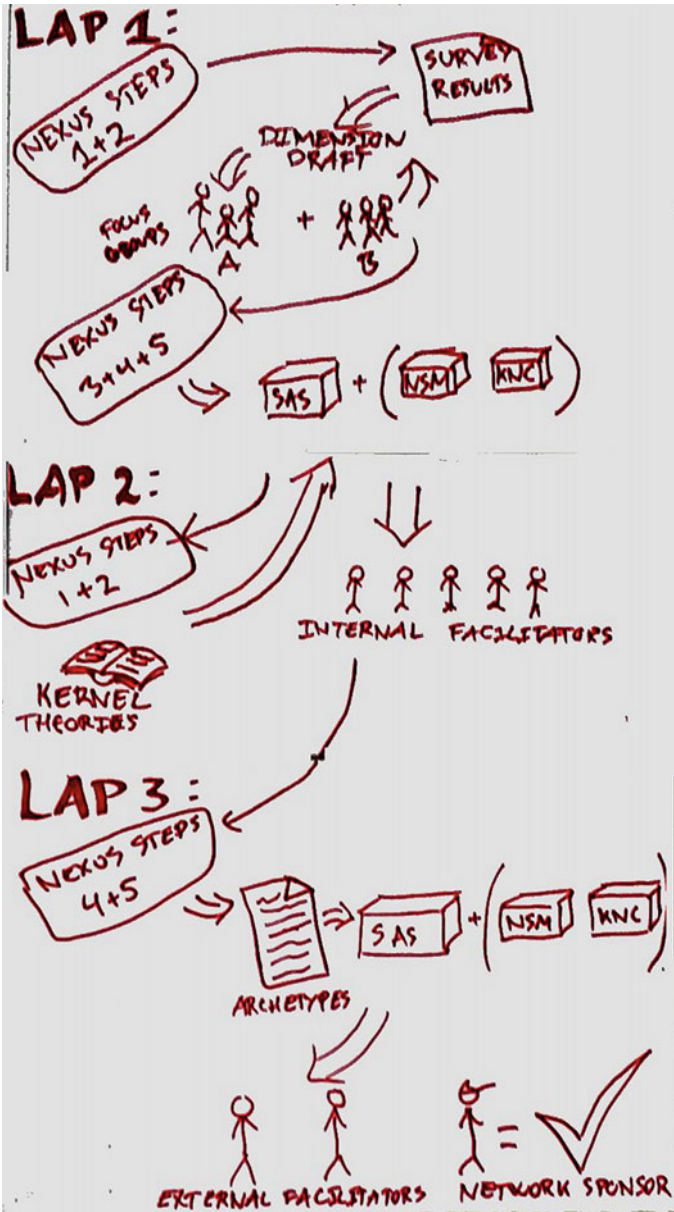 LAP 1:
NEXUS STEPS
1+2
SURVEY
RESULTS
DIMENSION
DRAFT
FOCUS
GROUPS
+
A
B
NEXUS STEPS
3+4+5
SAS
+
(
NSM
KNC
)
LAP 2:
NEXUS STEPS
1+2
INTERNAL FACILITATORS
KERNEL
THEORIES
LAP 3:
NEXUS STEPS
4+5
ARCHETYPES
SAS
+
(
NSM
KNC
)
=
EXTERNAL FACILITATORS
NETWORK SPONSOR